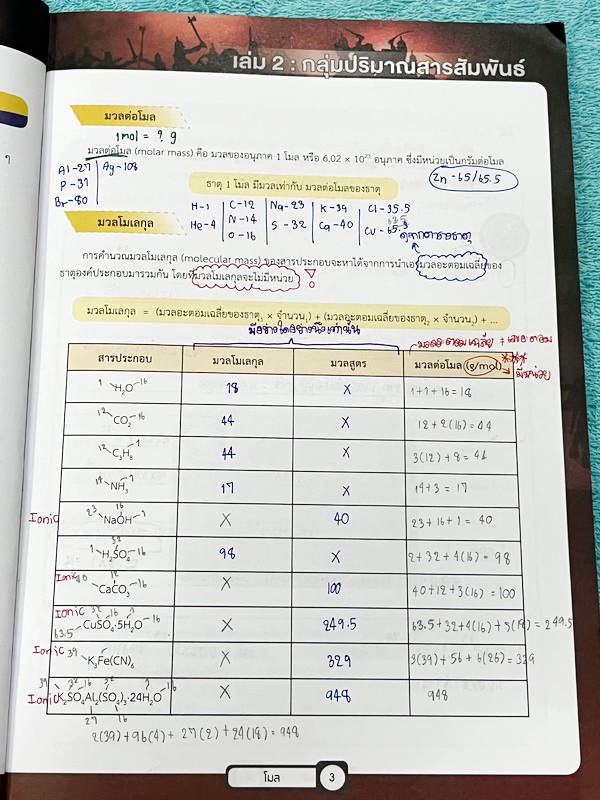 เล่ม 2 : กลุ่มปริมาณสารสัมพันธ์
มวลต่อโมล
1mol = ? g
มวลต่อโมล (molar mass) คือ มวลของอนุภาค 1 โมล หรือ 6.02 × 10²³ อนุภาค ซึ่งมีหน่วยเป็นกรัมต่อโมล
Al-27 Ag-108
P-31
Br-80
Zn-65/65.5
ธาตุ 1 โมล มีมวลเท่ากับ มวลต่อโมลของธาตุ
H-1 C-12 Na-23 K-39 Cl-35.5
He-4 N-14 S-32 Ca-40 Cu-63.5
O-16
มวลโมเลกุล
การคำนวณมวลโมเลกุล (molecular mass) ของสารประกอบจะหาได้จากการนำเอามวลอะตอมเฉลี่ยของ
ธาตุองค์ประกอบมารวมกัน โดยที่มวลโมเลกุลจะไม่มีหน่วย
มวลโมเลกุล = (มวลอะตอมเฉลี่ยของธาตุ₁ × จำนวน₁) + (มวลอะตอมเฉลี่ยของธาตุ₂ × จำนวน₂) + ...
สารประกอบ มวลโมเลกุล มวลสูตร มวลต่อโมล (g/mol)
มีหน่วย
1 H₂O 16 18 X 1+1+16 = 18
12 CO₂ 16 44 X 12+2(16) = 44
12 C₃H₈ 1 44 X 3(12)+8 = 44
14 NH₃ 1 17 X 14+3 = 17
Ionic 23 NaOH 16 1 X 40 23+16+1 = 40
1 H₂SO₄ 32 16 98 X 2+32+4(16) = 98
Ionic 40 CaCO₃ 12 16 X 100 40+12+3(16) = 100
Ionic 63.5 CuSO₄·5H₂O 32 16 1 16 X 249.5 63.5+32+4(16)+5(18) = 249.5
Ionic 39 K₃Fe(CN)₆ X 329 3(39)+56+6(26) = 329
Ionic 39 K₂SO₄Al₂(SO₄)₃·24H₂O 32 16 32 1 16 X 948 948
27 16
2(39)+96(4)+27(2)+24(18) = 948
โมล 3